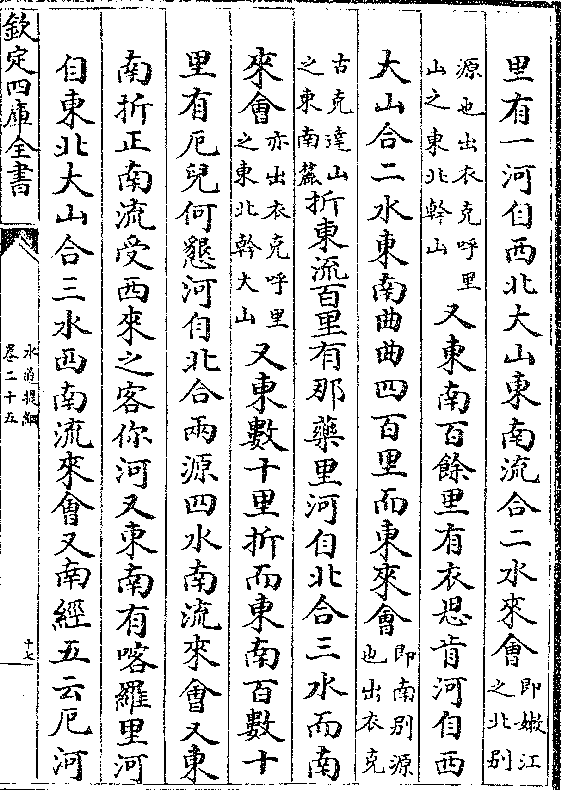 里有一河自西北大山東南流合二水來會即嫩江之北别
源也出衣克呼里山之東北幹山又東南百餘里有衣思肯河自西
大山合二水東南曲曲四百里而東來會即南别源也出衣克
古克達山之東南麓折東流百里有那藥里河自北合三水而南
來會亦出衣克呼里之東北幹大山又東數十里折而東南百數十
里有厄兒何懇河自北合兩源四水南流來會又東
南折正南流受西來之客你河又東南有喀羅里河
自東北大山合三水西南流來會又南經五云厄河
欽定四庫全書
水道提綱
卷二十五
十七